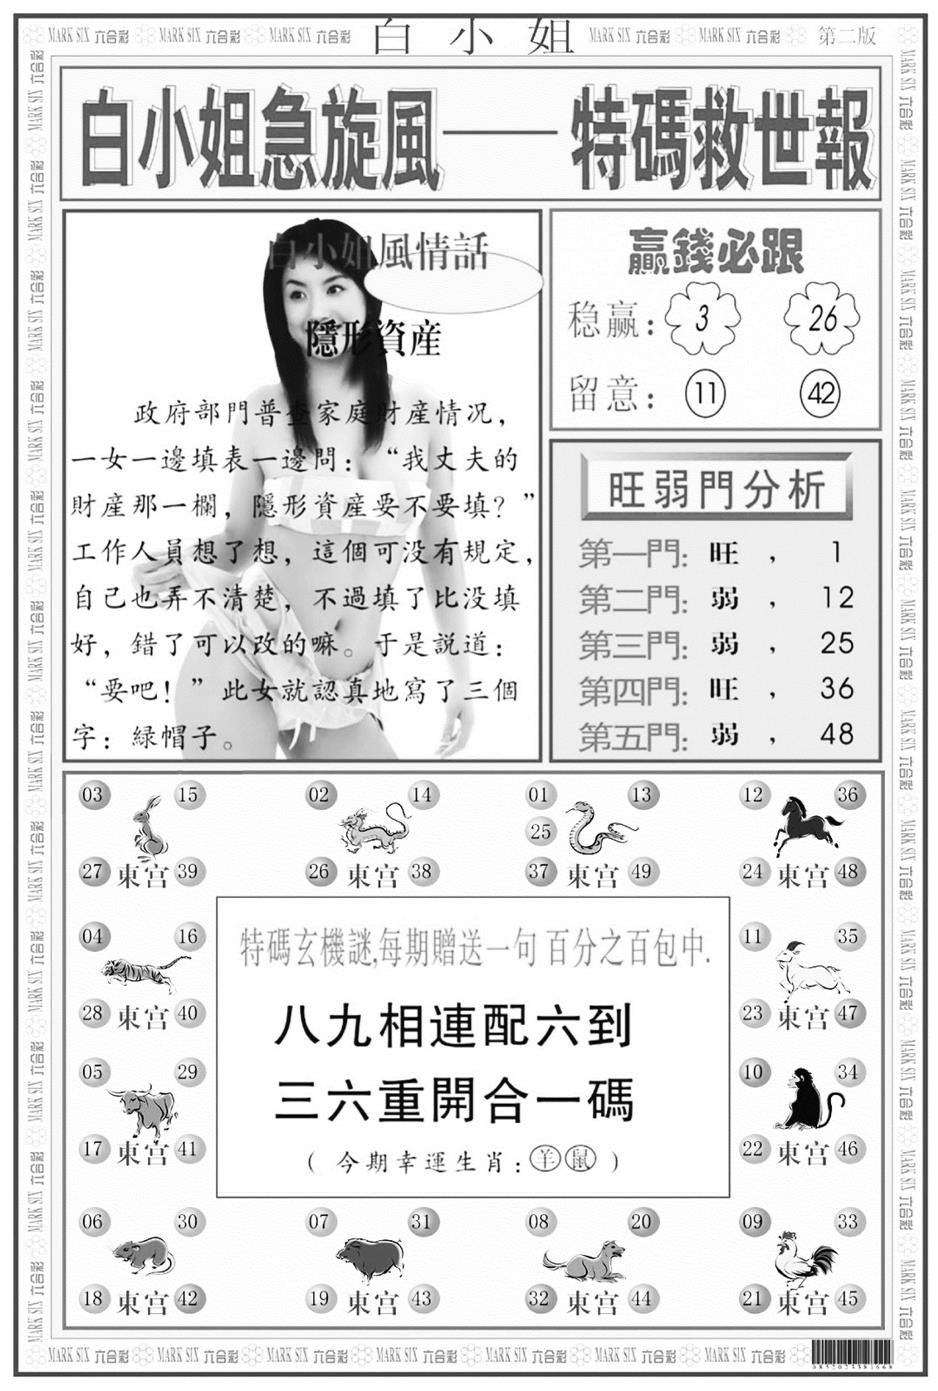 MARK SIX 六合彩 MARK SIX 六合彩 MARK SIX 六合彩 白小姐 MARK SIX 六合彩 MARK SIX 六合彩 第二版
白小姐急旋風——特碼救世報
白小姐風情話
隱形資産
政府部門普查家庭財産情况，
一女一邊填表一邊問：“我丈夫的
財産那一欄，隱形資産要不要填？”
工作人員想了想，這個可没有規定，
自己也弄不清楚，不過填了比没填
好，錯了可以改的嘛。于是説道：
“要吧！”此女就認真地寫了三個
字：緑帽子。
贏錢必跟
稳赢： 3 26
留意： 11 42
旺弱門分析
第一門：旺，1
第二門：弱，12
第三門：弱，25
第四門：旺，36
第五門：弱，48
03 15
27 東宫 39
02 14
26 東宫 38
01 13
25
37 東宫 49
12 36
24 東宫 48
04 16
28 東宫 40
11 35
23 東宫 47
05 29
17 東宫 41
10 34
22 東宫 46
特碼玄機謎,每期贈送一句 百分之百包中.
八九相連配六到
三六重開合一碼
（今期幸運生肖：羊鼠）
06 30
18 東宫 42
07 31
19 東宫 43
08 20
32 東宫 44
09 33
21 東宫 45
MARK SIX 六合彩 MARK SIX 六合彩 MARK SIX 六合彩 MARK SIX 六合彩 MARK SIX 六合彩 MARK SIX 六合彩 MARK SIX 六合彩